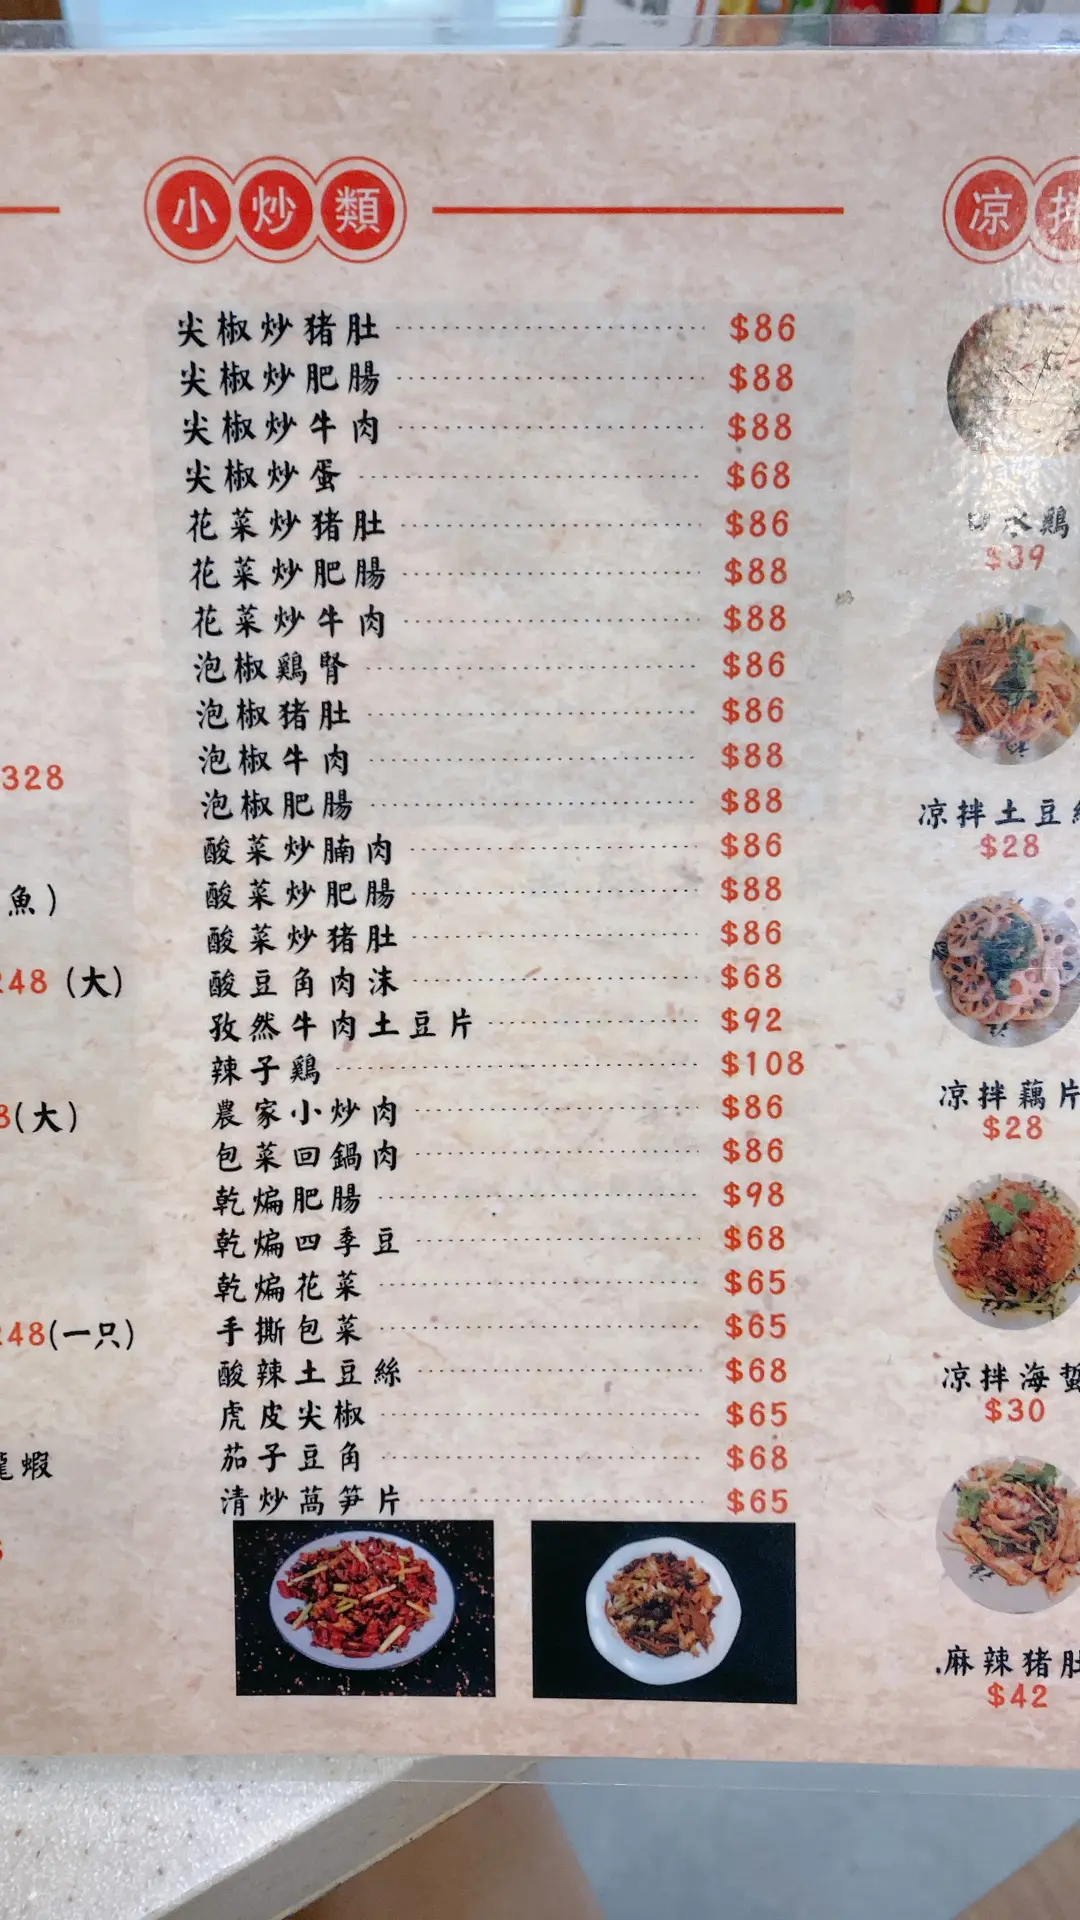 小炒類
尖椒炒猪肚 $86
尖椒炒肥腸 $88
尖椒炒牛肉 $88
尖椒炒蛋 $68
花菜炒猪肚 $86
花菜炒肥腸 $88
花菜炒牛肉 $88
泡椒鷄腎 $86
泡椒猪肚 $86
泡椒牛肉 $88
泡椒肥腸 $88
酸菜炒腩肉 $86
酸菜炒肥腸 $88
酸菜炒猪肚 $86
酸豆角肉沫 $68
孜然牛肉土豆片 $92
辣子鷄 $108
農家小炒肉 $86
包菜回鍋肉 $86
乾煸肥腸 $98
乾煸四季豆 $68
乾煸花菜 $65
手撕包菜 $65
酸辣土豆絲 $68
虎皮尖椒 $65
茄子豆角 $68
清炒萵笋片 $65
328
魚)
248 (大)
8(大)
248(一只)
蝦
凉拌
口水鷄
$39
凉拌土豆絲
$28
凉拌藕片
$28
凉拌海蜇
$30
麻辣猪肚
$42